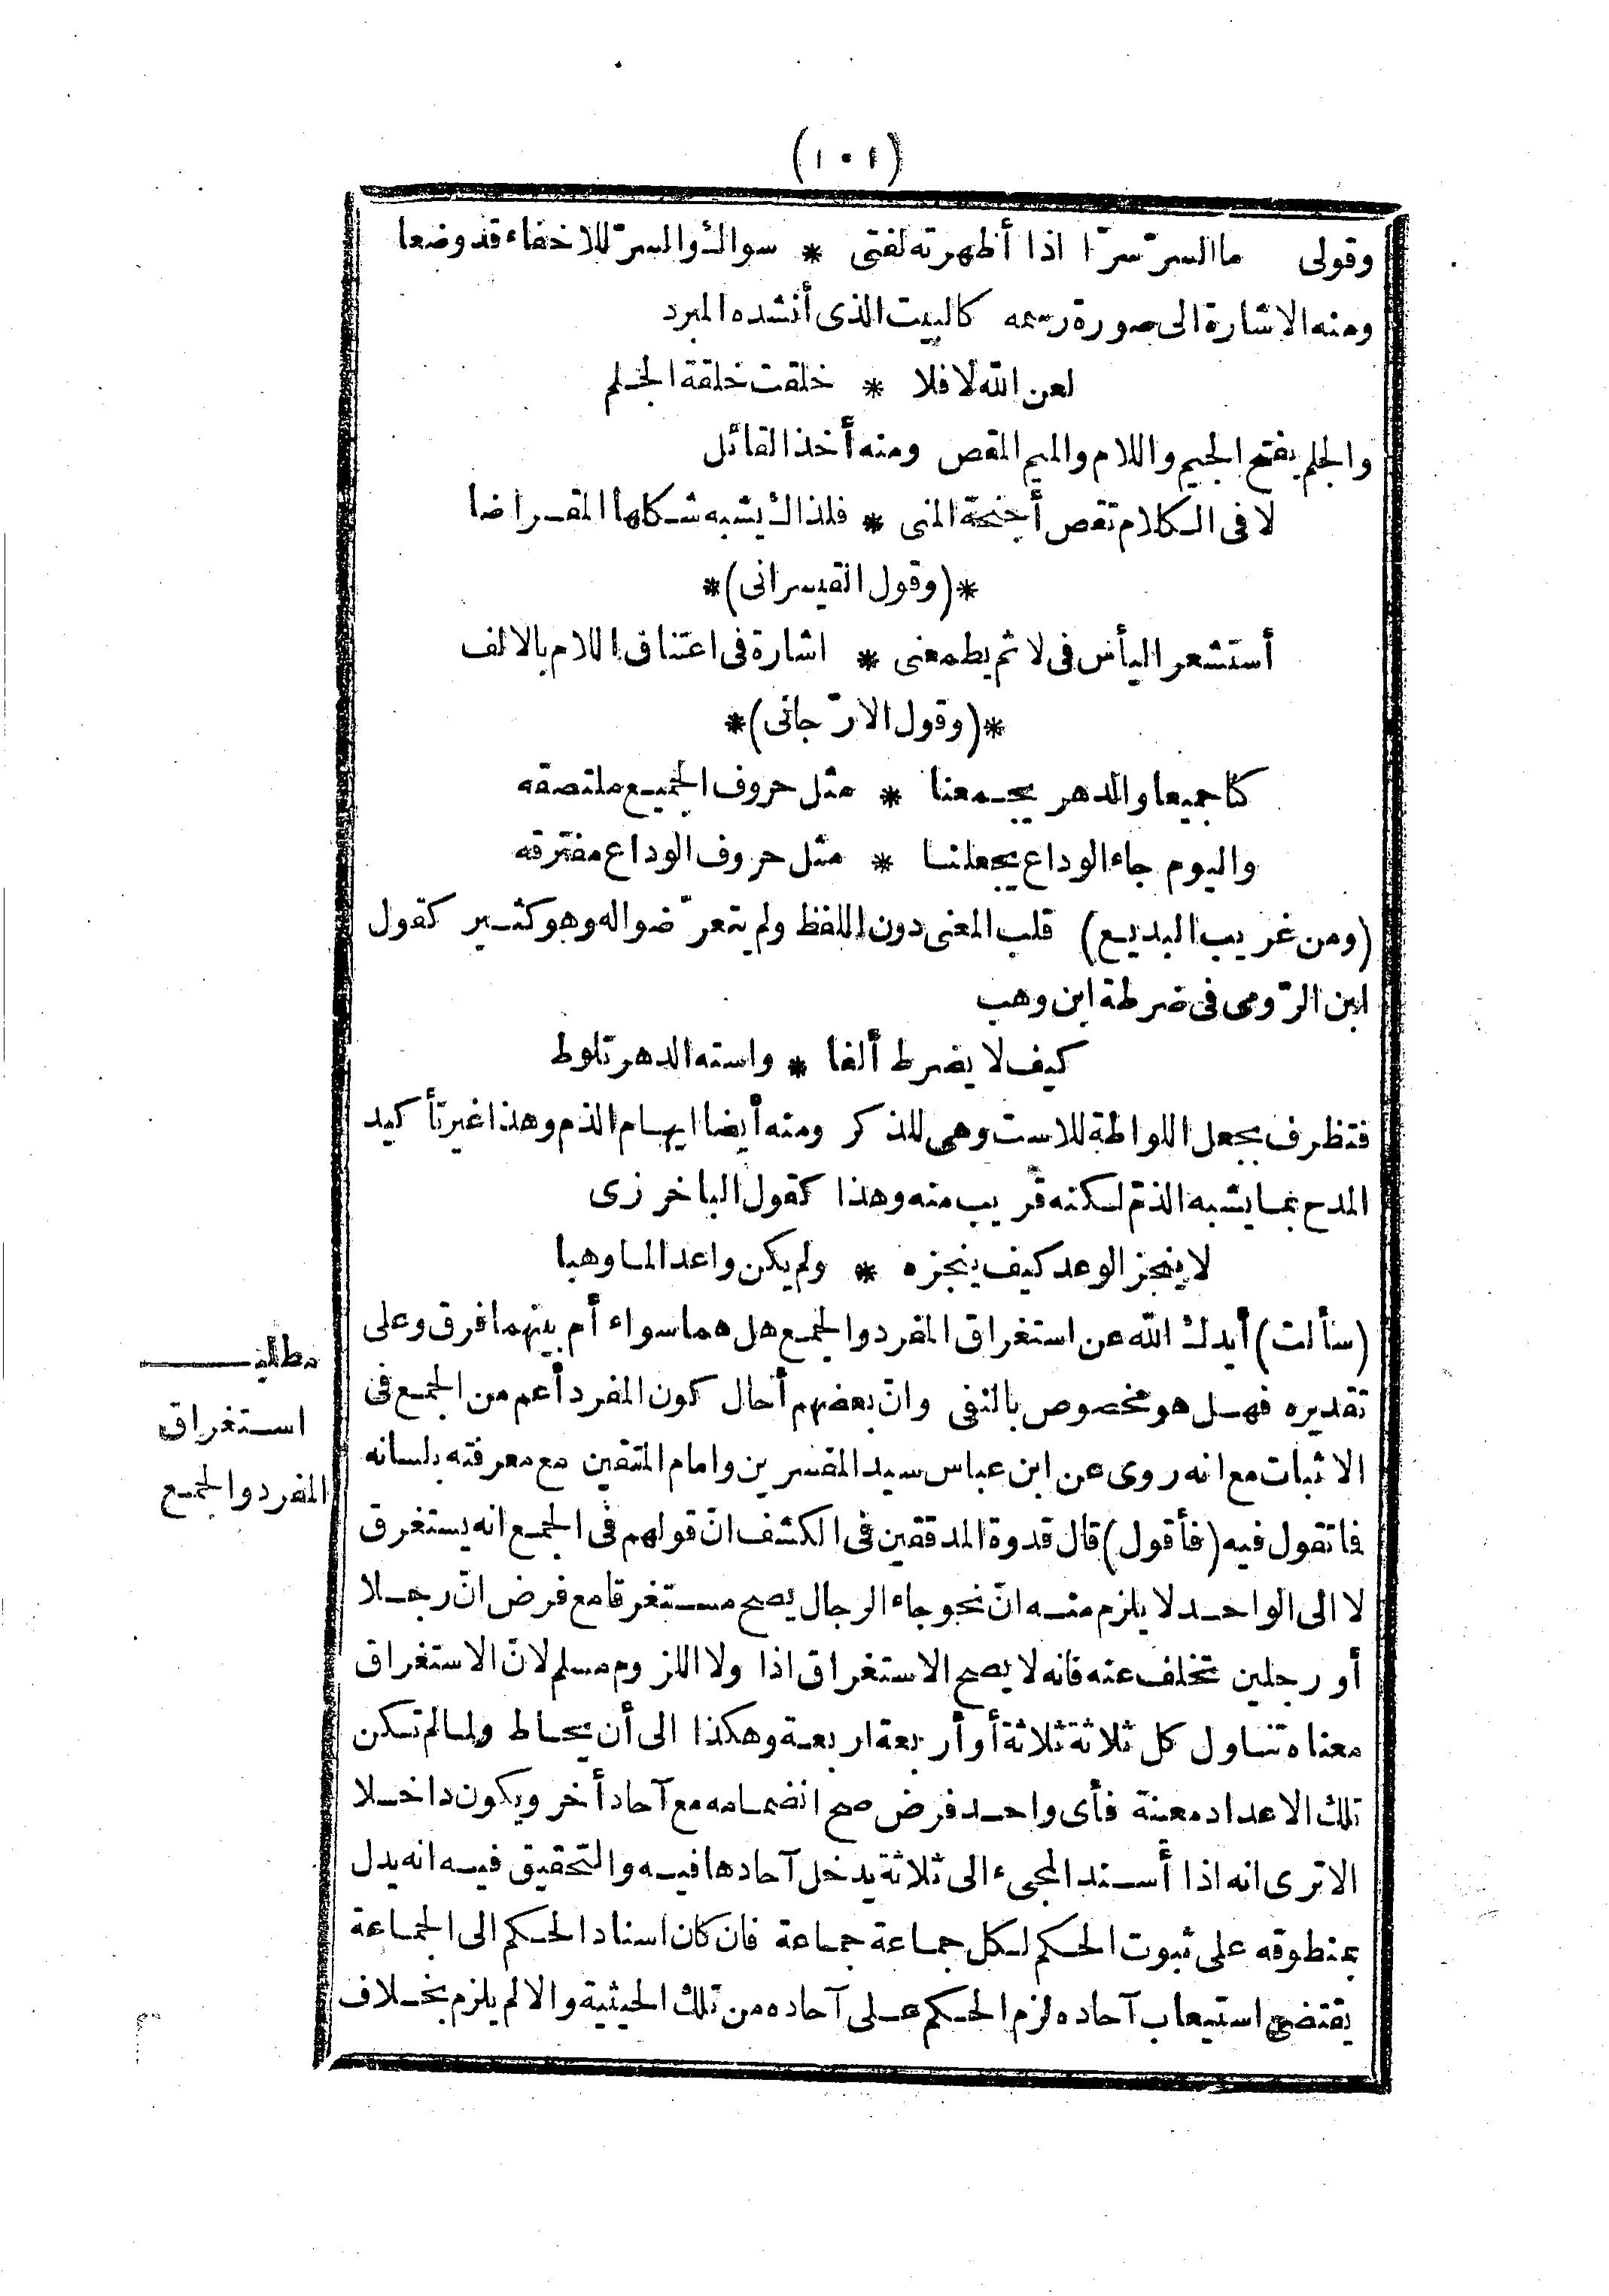 (١٠١)
وقولى ما السرّ سرّا اذا أظهرته لفتى * سواك والسرّ للاخفاء قد وضعا
ومنه الاشارة الى صورة رسمه كالبيت الذى أنشده المبرد
لعن الله لا فلا * خلقت خلقة الجلم
والجلم بفتح الجيم واللام والميم المقص ومنه أخذ القائل
لا فى الكلام تقص أجنحة المنى * فلذاك يشبه شكلها المقراضا
*(وقول القيسرانى)*
أستشعر اليأس فى لا ثم يطمعنى * اشارة فى اعتناق اللام بالالف
*(وقول الارّجانى)*
كنا جميعا والدهر يجمعنا * مثل حروف الجميع ملتصقه
واليوم جاء الوداع يجعلنا * مثل حروف الوداع مفترقه
(ومن غريب البديع) قلب المعنى دون اللفظ ولم يتعرّضوا له وهو كثير كقول
ابن الرّومى فى ضرطة ابن وهب
كيف لا يضرط ألفا * واسته الدهر تلوط
فتظرف بجعل اللواطة للاست وهى للذكر ومنه أيضا ايهام الذم وهذا غير تأكيد
المدح بما يشبه الذمّ لكنه قريب منه وهذا كقول الباخرزى
لا ينجز الوعد كيف ينجزه * ولم يكن واعد الما وهبا
(سألت) أيدك الله عن استغراق المفرد والجمع هل هما سواء أم بينهما فرق وعلى
تقديره فهل هو مخصوص بالنفى وانّ بعضهم أحال كون المفرد أعم من الجمع فى
الاثبات مع انه روى عن ابن عباس سيد المفسرين وامام المتقين مع معرفته بلسانه
فا تقول فيه (فأقول) قال قدوة المدققين فى الكشف انّ قولهم فى الجمع انه يستغرق
لا الى الواحد لا يلزم منه انّ نحو جاء الرجال يصح مستغرقا مع فرض انّ رجلا
أو رجلين تخلف عنه فانه لا يصح الاستغراق اذا ولا اللزوم مسلم لانّ الاستغراق
معناه تناول كل ثلاثة ثلاثة أو أربعة اربعة وهكذا الى أن يحاط ولما لم تكن
تلك الاعداد معينة فأى واحد فرض صح انضمامه مع آحاد أخر ويكون داخلا
الا ترى انه اذا أسند المجىء الى ثلاثة يدخل آحادها فيه والتحقيق فيه انه يدل
بمنطوقه على ثبوت الحكم لكل جماعة جماعة فان كان اسناد الحكم الى الجماعة
يقتضى استيعاب آحاده لزم الحكم على آحاده من تلك الحيثية والا لم يلزم بخلاف
مطلب
استغراق
المفرد والجمع